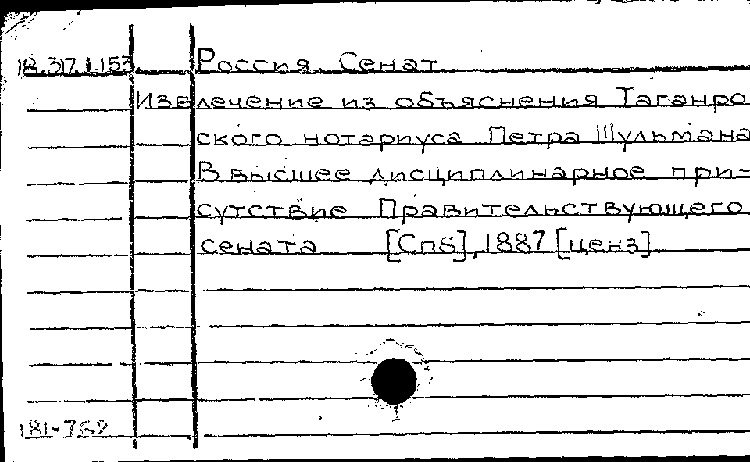 18.317.1.153. Россия. Сенат
Извлечение из объяснения Таганро
ского нотариуса Петра Шульмана
В высшее дисциплинарное при-
сутствие Правительствующего
сената [Спб], 1887 [ценз]
181-769